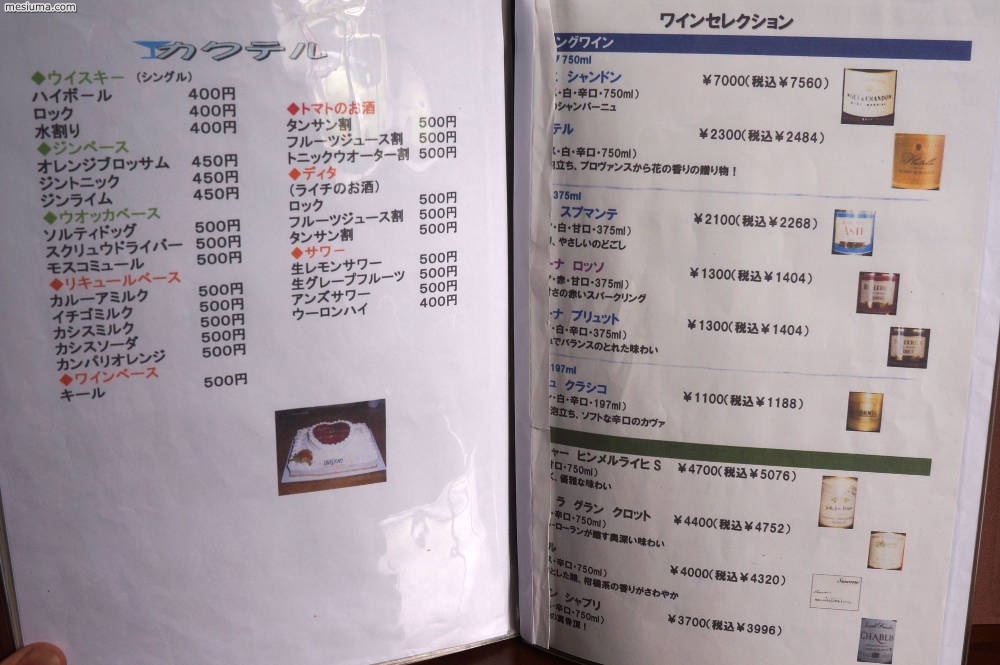 mesiuma.com
カクテル
◆ウイスキー (シングル)
ハイボール 400円
ロック 400円
水割り 400円
◆ジンベース
オレンジブロッサム 450円
ジントニック 450円
ジンライム 450円
◆ウオッカベース
ソルティドッグ 500円
スクリュウドライバー 500円
モスコミュール 500円
◆リキュールベース
カルーアミルク 500円
イチゴミルク 500円
カシスミルク 500円
カシスソーダ 500円
カンパリオレンジ 500円
◆ワインベース
キール 500円
◆トマトのお酒
タンサン割 500円
フルーツジュース割 500円
トニックウオーター割 500円
◆ディタ
(ライチのお酒)
ロック 500円
フルーツジュース割 500円
タンサン割 500円
◆サワー
生レモンサワー 500円
生グレープフルーツ 500円
アンズサワー 500円
ウーロンハイ 400円
ワインセレクション
ングワイン
750ml
シャンドン ￥7000(税込￥7560)
・白・辛口・750ml)
のシャンパーニュ
テル ￥2300(税込￥2484)
・白・辛口・750ml)
泡立ち、プロヴァンスから花の香りの贈り物！
375ml
スプマンテ ￥2100(税込￥2268)
・白・甘口・375ml)
、やさしいのどごし
ーナ ロッソ ￥1300(税込￥1404)
・赤・甘口・375ml)
甘さの赤いスパークリング
ーナ ブリュット ￥1300(税込￥1404)
・白・辛口・375ml)
でバランスのとれた味わい
197ml
ュ クラシコ ￥1100(税込￥1188)
・白・辛口・197ml)
泡立ち、ソフトな辛口のカヴァ
ャー ヒンメルライヒ S ￥4700(税込￥5076)
甘口・750ml)
く、優雅な味わい
ラ グラン クロット ￥4400(税込￥4752)
・辛口・750ml)
・ローランが醸す奥深い味わい
ル ￥4000(税込￥4320)
・辛口・750ml)
とした酸、柑橘系の香りがさわやか
ン シャブリ ￥3700(税込￥3996)
・辛口・750ml)
の真骨頂！
MOET & CHANDON
ASTI
CHABLIS